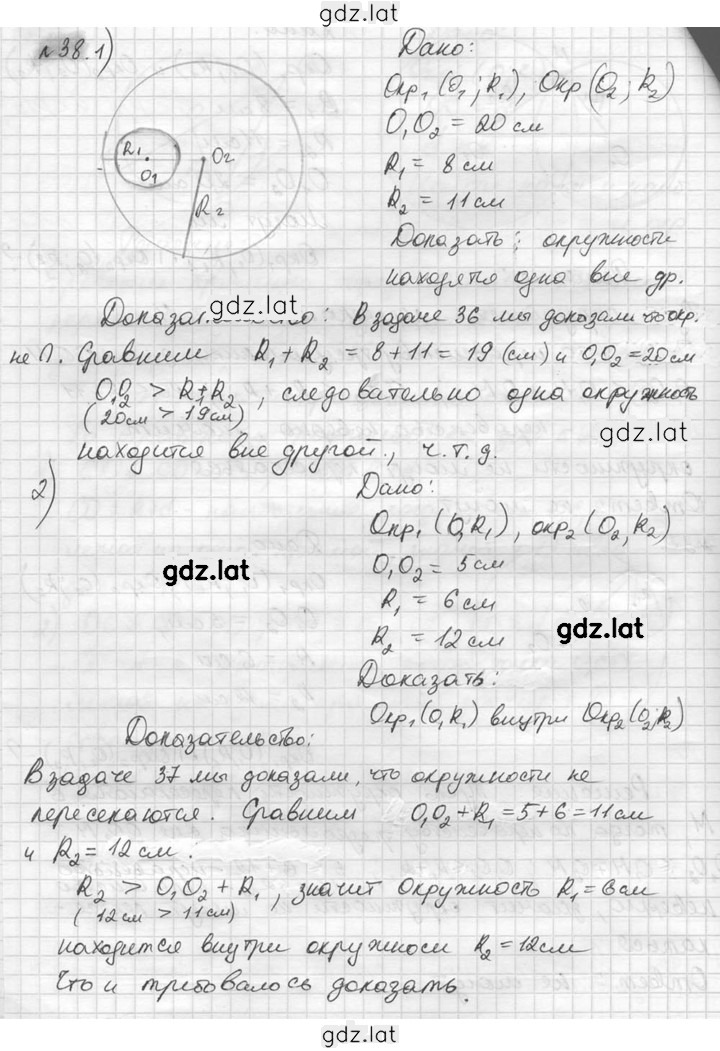 gdz.lat
№38.1)
Дано:
Окр₁(O₁; R₁), Окр(O₂; R₂)
O₁O₂ = 20 см
R₁ = 8 см
R₂ = 11 см
R₁
O₁
O₂
R₂
Доказать: окружности
находятся одна вне др.
gdz.lat
Доказательство: В задаче 36 мы доказали что окр.
не ∩. Сравним R₁ + R₂ = 8 + 11 = 19 (см) и O₁O₂ = 20 см
O₁O₂ > R₁+R₂, следовательно одна окружность
(20 см > 19 см)
gdz.lat
находится вне другой., ч.т.д.
2)
Дано:
Окр₁(O₁R₁), окр₂(O₂, R₂)
gdz.lat
O₁O₂ = 5 см
R₁ = 6 см
gdz.lat
R₂ = 12 см
Доказать:
Окр₁(O₁R₁) внутри Окр₂(O₂;R₂)
Доказательство:
В задаче 37 мы доказали, что окружности не
пересекаются. Сравним O₁O₂ + R₁ = 5 + 6 = 11 см
и R₂ = 12 см.
R₂ > O₁O₂ + R₁, значит окружность R₁ = 6 см
(12 см > 11 см)
находится внутри окружноси R₂ = 12 см
Что и требовалось доказать.
gdz.lat